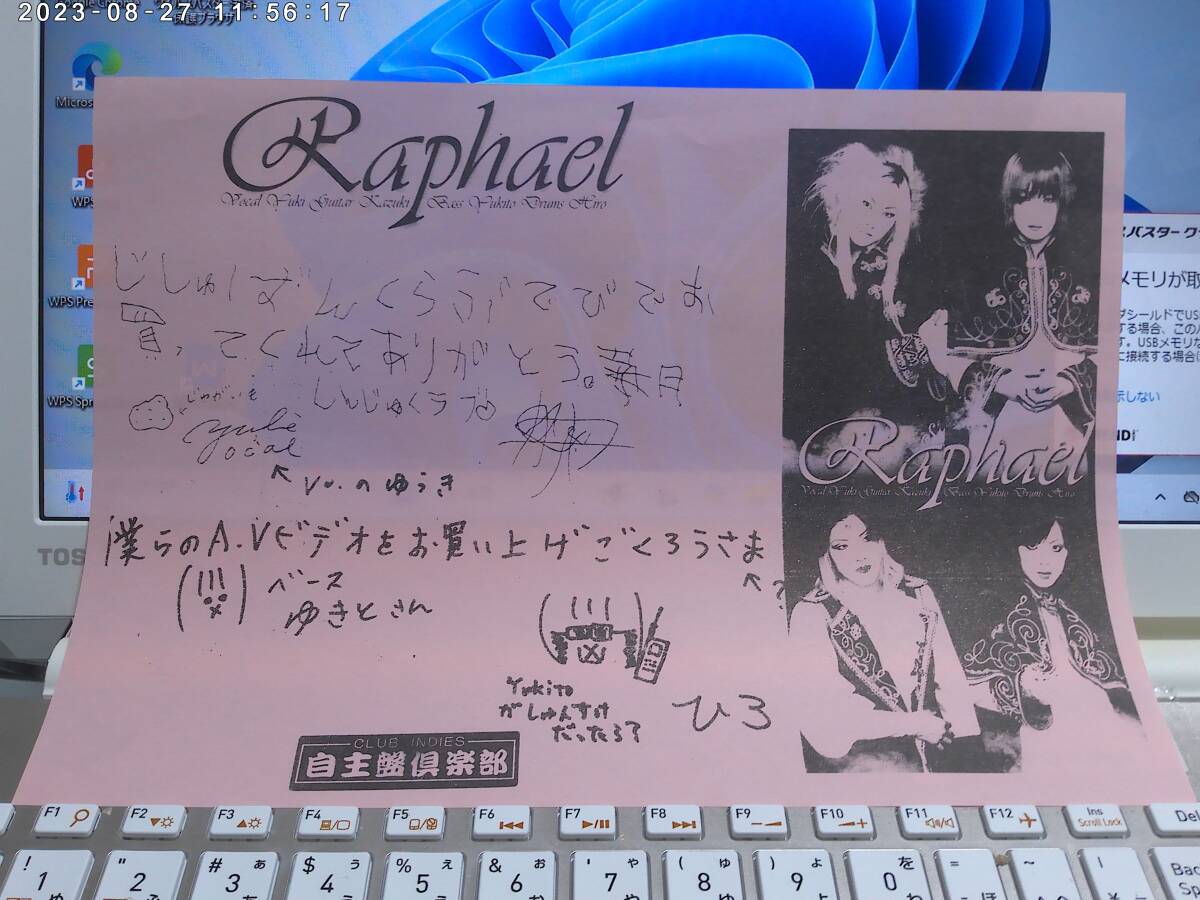 2023-08-27 11:56:17
Raphael
Vocal Yuki Guitar Kazuki Bass Yukito Drums Hiro
じしゅばんくらぶでびでお
買ってくれてありがとう。華月
じゃがいも
しんじゅくラブ
yuki
vocal
Vo.のゆうき
僕らのA.Vビデオをお買い上げごくろうさま
?
ベース
ゆきとさん
Yukito
がしゅんすけ
だったら?
ひろ
CLUB INDIES
自主盤倶楽部
Raphael
Vocal Yuki Guitar Kazuki Bass Yukito Drums Hiro
WPS Pre
WPS Spr
バスター ク
メモリが取
ダシールドでUS
する場合、この
す。USBメモリな
に接続する場合
示しない
TOS
F1
F2
F3
F4
F5
F6
F7
F8
F9
F10
F11
F12
Ins
Scroll Lock
Del
! 1 ぬ
" 2 ふ
# ぁ 3 あ
$ ぅ 4 う
% ぇ 5 え
& ぉ 6 お
' ゃ 7 や
( ゅ 8 ゆ
) ょ 9 よ
を 0 わ
= - ほ
~ ^ へ
| ¥ ー
Bac
Sp